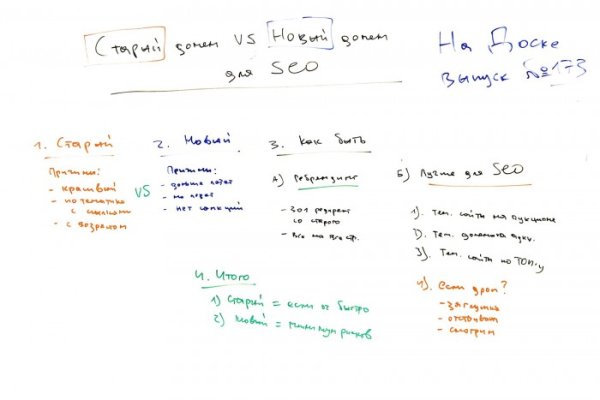 Старый домен VS Новый домен
для SEO
На Доске
Выпуск №173
1. Старый
Причины:
- красивый
- по тематике
с ссылками
- с возрастом
VS
2. Новый
Причины:
- дольше
- не
- нет санкций
3. Как быть
А) Ребрендинг
- 301 редирект
со старого
- Все на все стр.
Б) Лучше для SEO
1). Тем. сайты на аукционе
2). Тем. домена аукц.
3). Тем. сайты по ТОП-у
4). Если дроп?
- заглушка
- отстаивать
- смотрим
4. Итого
1) Старый = если оч быстро
2) Новый = минимум рисков